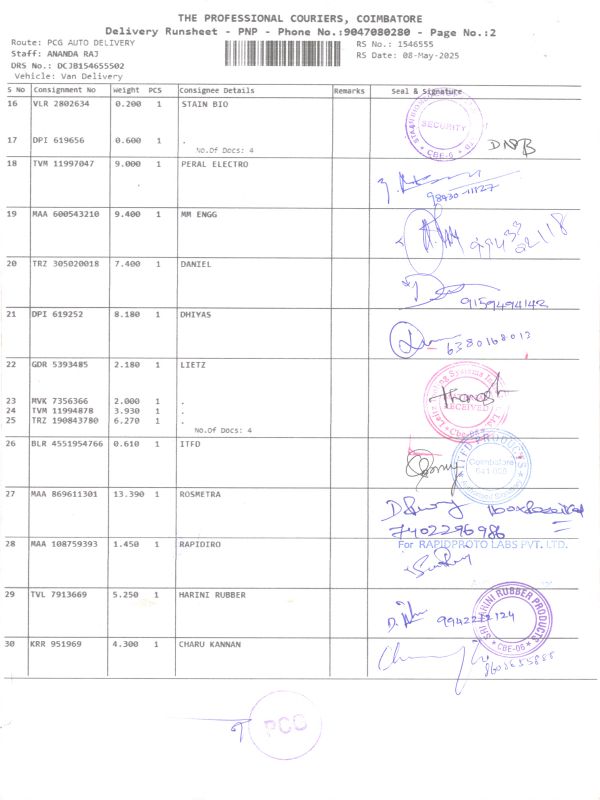 THE PROFESSIONAL COURIERS, COIMBATORE
Delivery Runsheet - PNP - Phone No.:9047080280 - Page No.:2
Route: PCG AUTO DELIVERY
Staff: ANANDA RAJ
DRS No.: DCJB154655502
Vehicle: Van Delivery
RS No.: 1546555
RS Date: 08-May-2025
S No Consignment No Weight PCS Consignee Details Remarks Seal & Signature
16 VLR 2802634 0.200 1 STAIN BIO
SECURITY
CBE-6
17 DPI 619656 0.600 1 .
No.Of Docs: 4
18 TVM 11997047 9.000 1 PERAL ELECTRO
19 MAA 600543210 9.400 1 MM ENGG
20 TRZ 305020018 7.400 1 DANIEL
9159494142
21 DPI 619252 8.180 1 DHIYAS
6380168012
22 GDR 5393485 2.180 1 LIETZ
RECEIVED
23 MVK 7356366 2.000 1 .
24 TVM 11994878 3.930 1 .
25 TRZ 190843780 6.270 1 .
No.Of Docs: 4
26 BLR 4551954766 0.610 1 ITFD
ITFD PRODUCTS
Coimbatore
27 MAA 869611301 13.390 1 ROSMETRA
7402296986
28 MAA 108759393 1.450 1 RAPIDIRO
For RAPIDPROTO LABS PVT. LTD.
29 TVL 7913669 5.250 1 HARINI RUBBER
SRI HARINI RUBBER PRODUCTS
CBE-06
30 KRR 951969 4.300 1 CHARU KANNAN
PCG